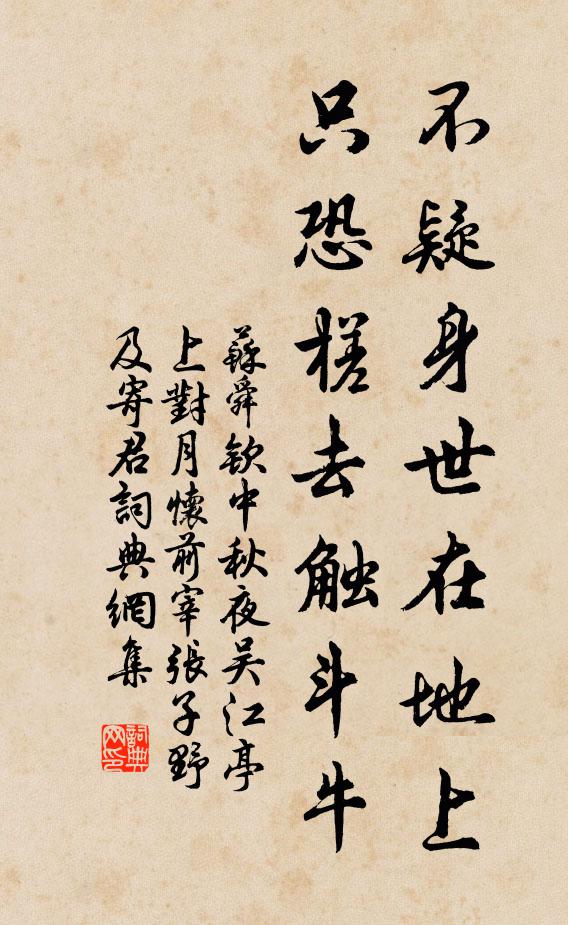 不疑身世在地上
只恐槎去触斗牛
蘇舜欽中秋夜吴江亭
上對月懷前宰張子野
及寄君詞典網集
詞典網印